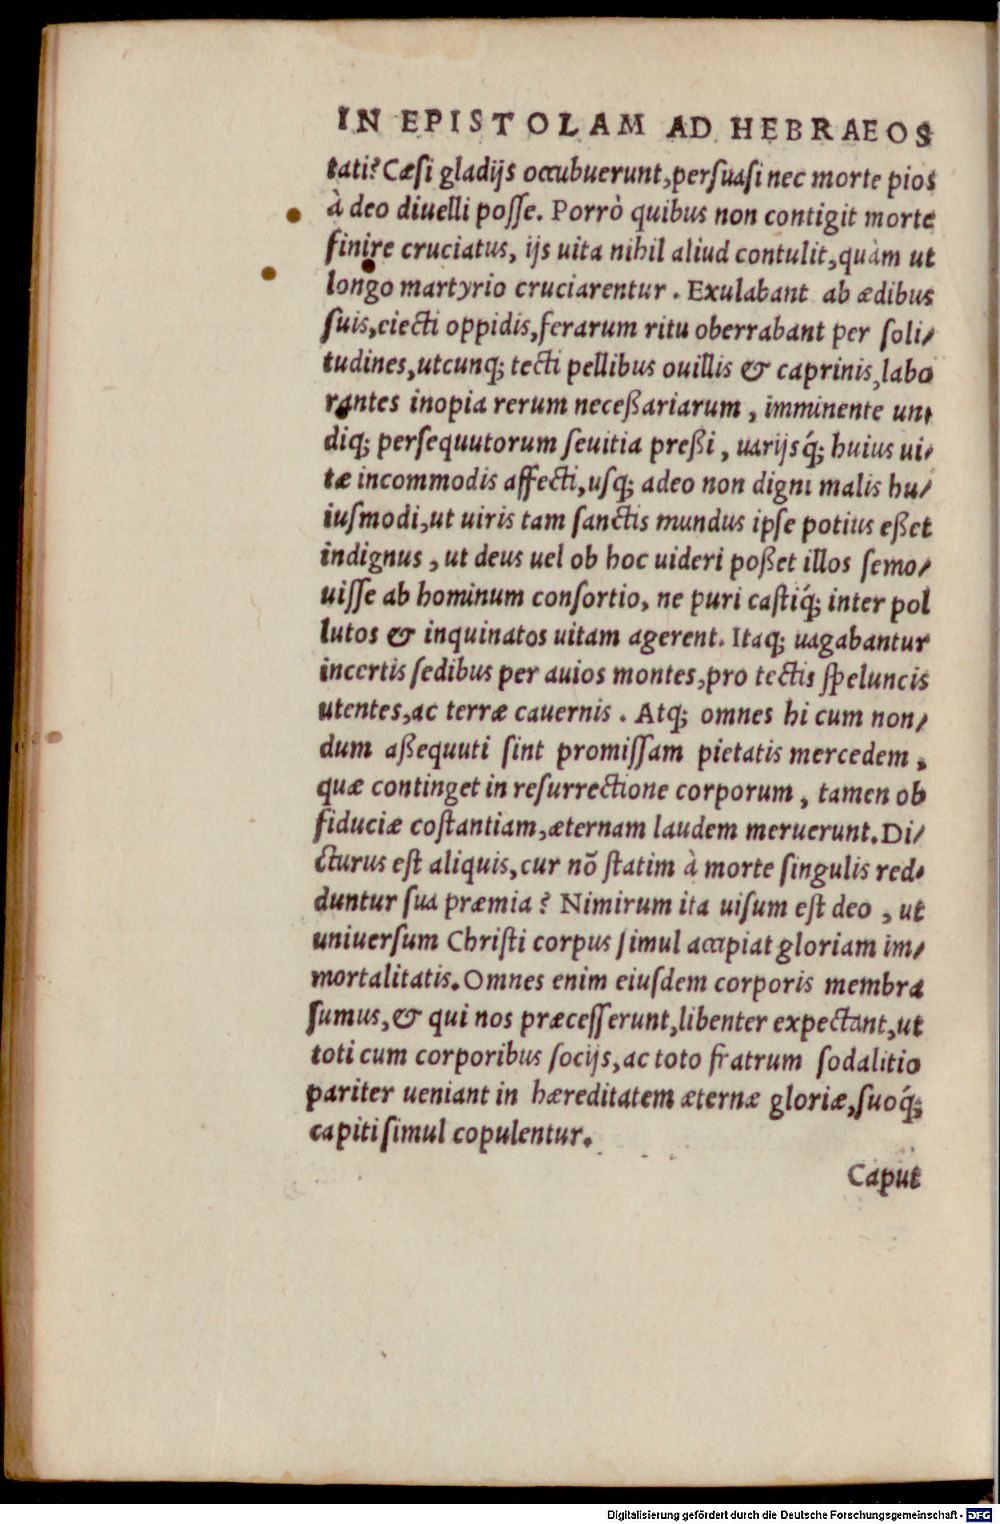 IN EPISTOLAM AD HEBRAEOS
tati? Cæsi gladijs occubuerunt, persuasi nec morte pios
à deo diuelli posse. Porrò quibus non contigit morte
finire cruciatus, ijs uita nihil aliud contulit, quàm ut
longo martyrio cruciarentur. Exulabant ab ædibus
suis, eiecti oppidis, ferarum ritu oberrabant per soli/
tudines, utcunq; tecti pellibus ouillis & caprinis, labo
rantes inopia rerum neceßariarum, imminente un/
diq; persequutorum seuitia preßi, uarijsq́; huius ui/
tæ incommodis affecti, usq; adeo non digni malis hu/
iusmodi, ut uiris tam sanctis mundus ipse potius eßet
indignus, ut deus uel ob hoc uideri poßet illos semo/
uisse ab hominum consortio, ne puri castiq́; inter pol
lutos & inquinatos uitam agerent. Itaq; uagabantur
incertis sedibus per auios montes, pro tectis speluncis
utentes, ac terræ cauernis. Atq; omnes hi cum non/
dum aßequuti sint promissam pietatis mercedem,
quæ continget in resurrectione corporum, tamen ob
fiduciæ costantiam, æternam laudem meruerunt. Di/
cturus est aliquis, cur nō statim à morte singulis red/
duntur sua præmia? Nimirum ita uisum est deo, ut
uniuersum Christi corpus simul accipiat gloriam im/
mortalitatis. Omnes enim eiusdem corporis membra
sumus, & qui nos præcesserunt, libenter expectant, ut
toti cum corporibus socijs, ac toto fratrum sodalitio
pariter ueniant in hæreditatem æternæ gloriæ, suoq́;
capiti simul copulentur.
Caput
Digitalisierung gefördert durch die Deutsche Forschungsgemeinschaft - DFG